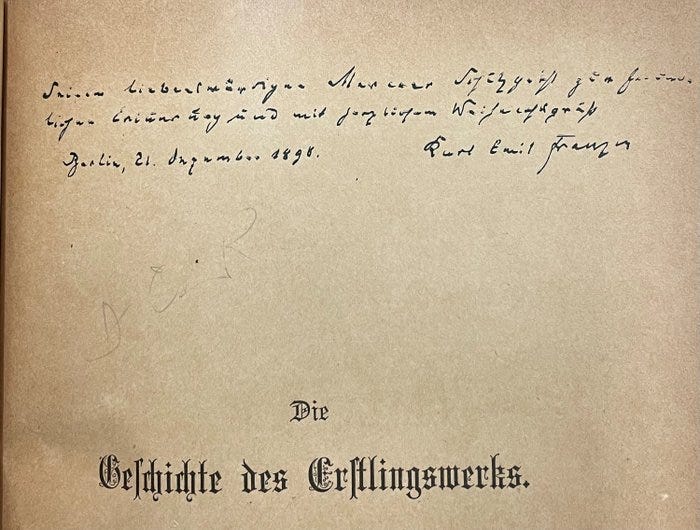 Seinem liebenswürdigen Meraner Schutzgeist zur freund-
lichen Erinnerung und mit herzlichem Weihnachtsgruß
Berlin, 21. Dezember 1898. Karl Emil Franzos
Die
Geschichte des Erstlingswerks.